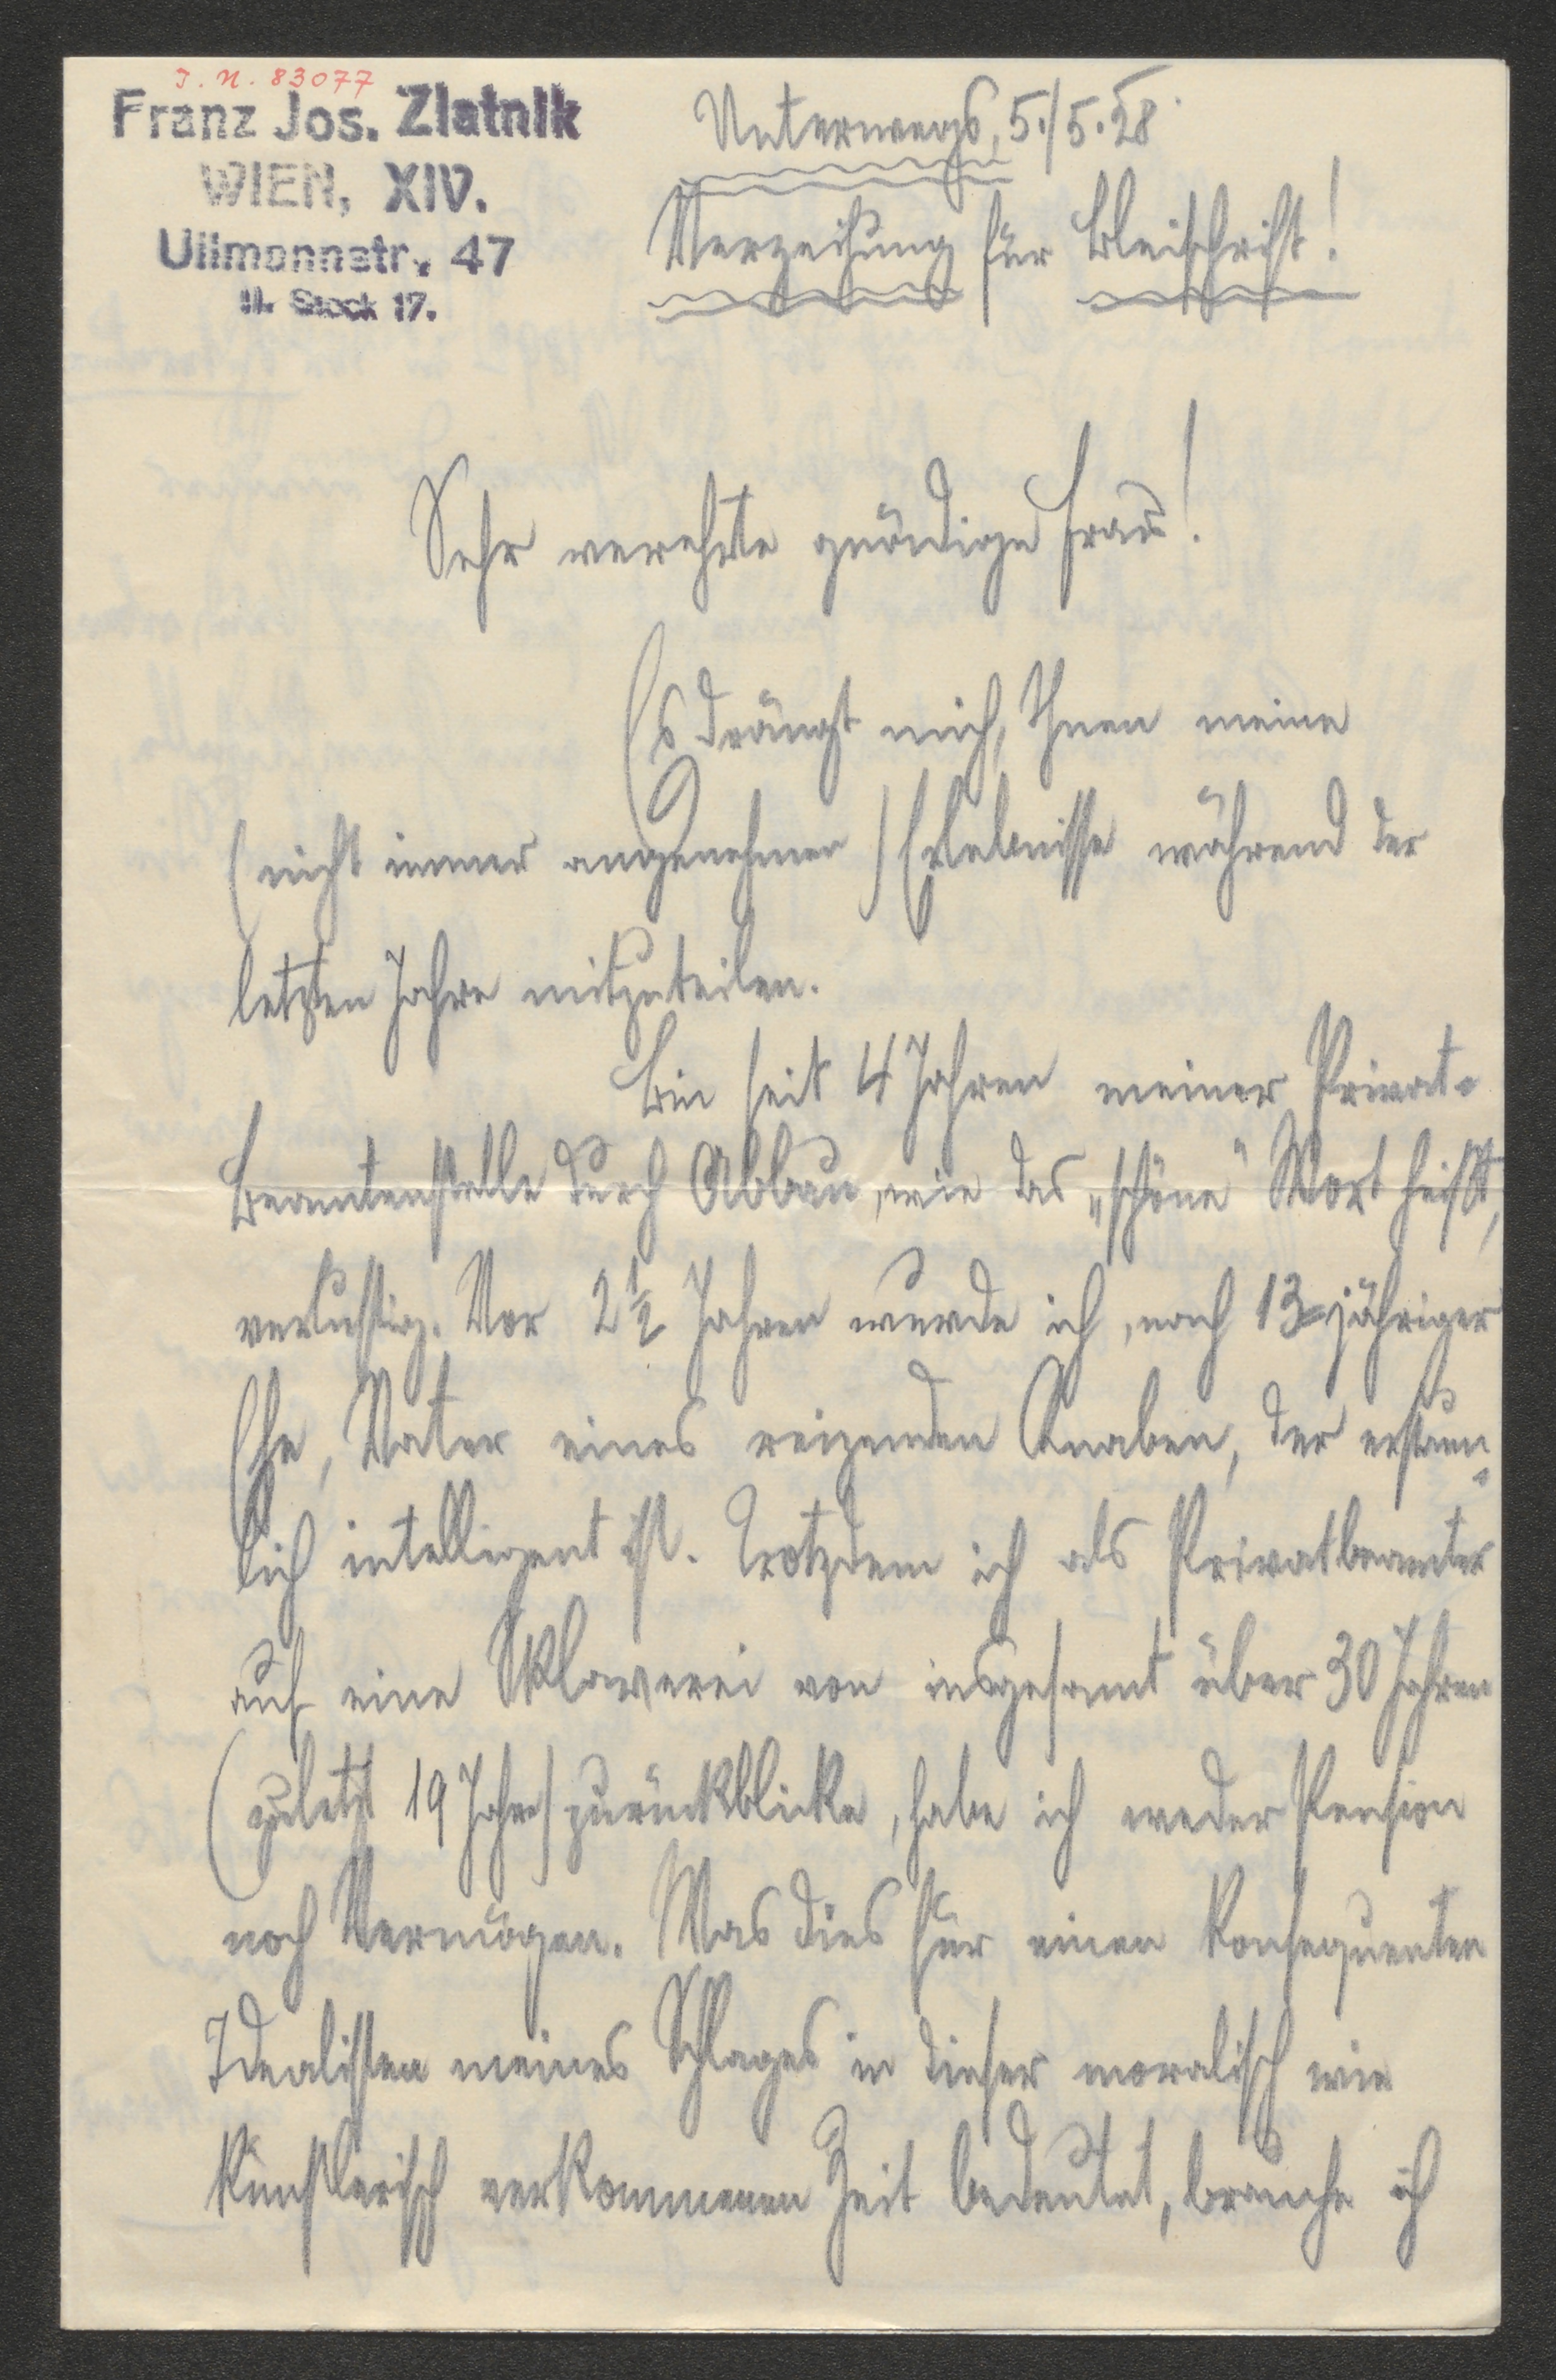 J. N. 83077
Franz Jos. Zlatnik
WIEN, XIV.
Ullmannstr. 47
II. Stock 17.
Unterwegs, 5./5.28.
Verzeihung für Bleischrift!
Sehr verehrte gnädige Frau!
Es drängt mich, Ihnen meine
(nicht immer angenehmen) Erlebnisse während der
letzten Jahre mitzuteilen.
Bin seit 4 Jahren meiner Privat-
Beamtenstelle durch Abbau, wie das „schöne" Wort heißt,
verlustig. Vor 2 1/2 Jahren wurde ich, nach 13=jähriger
Ehe, Vater eines reizenden Knaben, der erstaun-
lich intelligent ist. Trotzdem ich als Privatbeamter
auf eine Sklaverei von insgesamt über 30 Jahren
(zuletzt 19 Jahre) zurückblicke, habe ich weder Pension
noch Vermögen. Was dies für einen konsequenten
Idealisten meines Schlages in dieser moralisch wie
künstlerisch verkommenen Zeit bedeutet, brauche ich